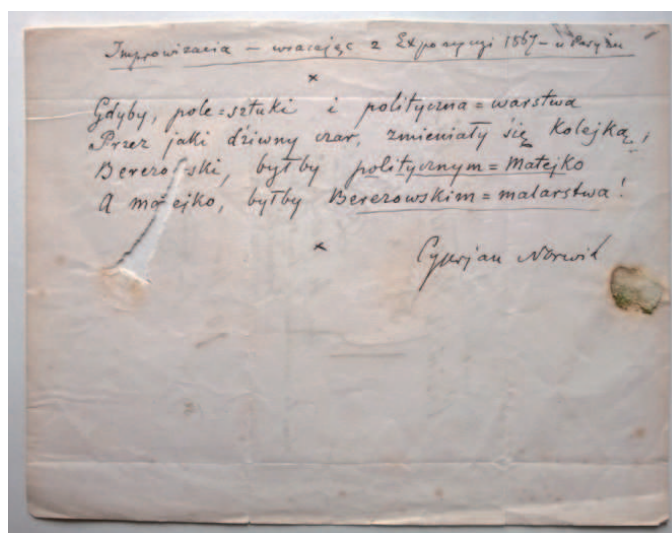 Improwizacia – wracając z Expozycyi 1867 – w Paryżu
×
Gdyby, pole=sztuki i polityczna=warstwa
Przez jaki dziwny czar, zmieniały się kolejką,
Berezowski, byłby politycznym=Matejko
A matejko, byłby Berezowskim=malarstwa!
×
Cyprjan Norwid